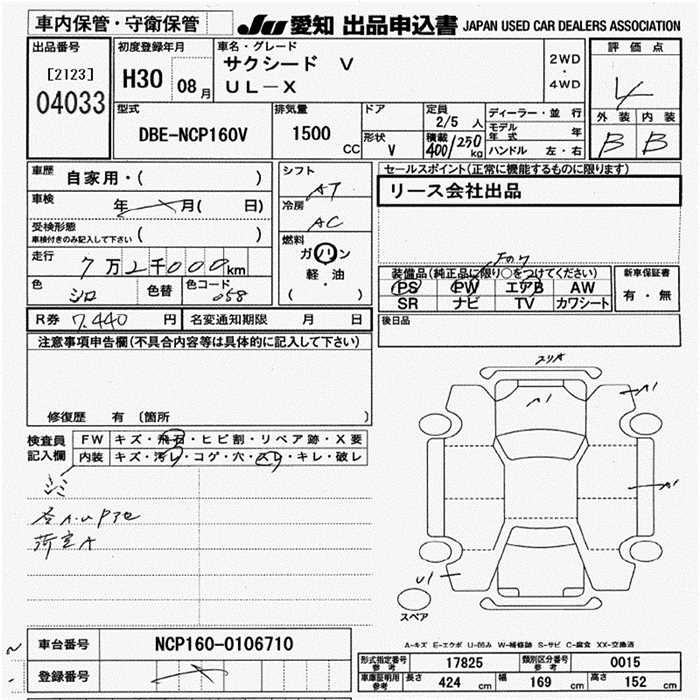 車内保管・守衛保管
JU 愛知 出品申込書 JAPAN USED CAR DEALERS ASSOCIATION
出品番号
[2123]
04033
初度登録年月
H30 08月
車名・グレード
サクシード V
UL-X
2WD
・
4WD
評価点
4
外装 内装
B B
型式
DBE-NCP160V
排気量
1500 CC
ドア
形状
V
定員
2/5人
積載
400/250 kg
ディーラー・並行
モデル年式 年
ハンドル 左・右
車歴
自家用・( )
車検
年 月( 日)
受検形態
車検付きのみ記入して下さい ( )
走行
7万2千000km
色
シロ
色替
色コード
058
シフト
AT
冷房
AC
燃料
ガソリン
軽・油
( )
セールスポイント(正常に機能するものに限ります)
リース会社出品
装備品(純正品に限り○をつけてください)
PS PW エアB AW
SR ナビ TV カワシート
新車保証書
有・無
R券 7,440 円 名変通知期限 月 日
後日品
注意事項申告欄(不具合内容等は具体的に記入して下さい)
修復歴 有 〔箇所 〕
検査員記入欄
FW キズ・飛石・ヒビ割・リペア跡・X要
内装 キズ・汚レ・コゲ・穴・スレ・キレ・破レ
シミ
荷室A
スリA
A1
A1
A1
U1
スペア
車台番号 NCP160-0106710
登録番号
A-キズ E-エクボ U-凹み W-補修跡 S-サビ C-腐食 XX-交換済
形式指定番号 参考 17825 類別区分番号 参考 0015
車庫証明用 参考 長さ 424 cm 幅 169 cm 高さ 152 cm